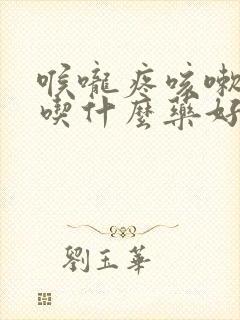 喉嚨疼咳嗽
喫什麼藥好
劉玉華